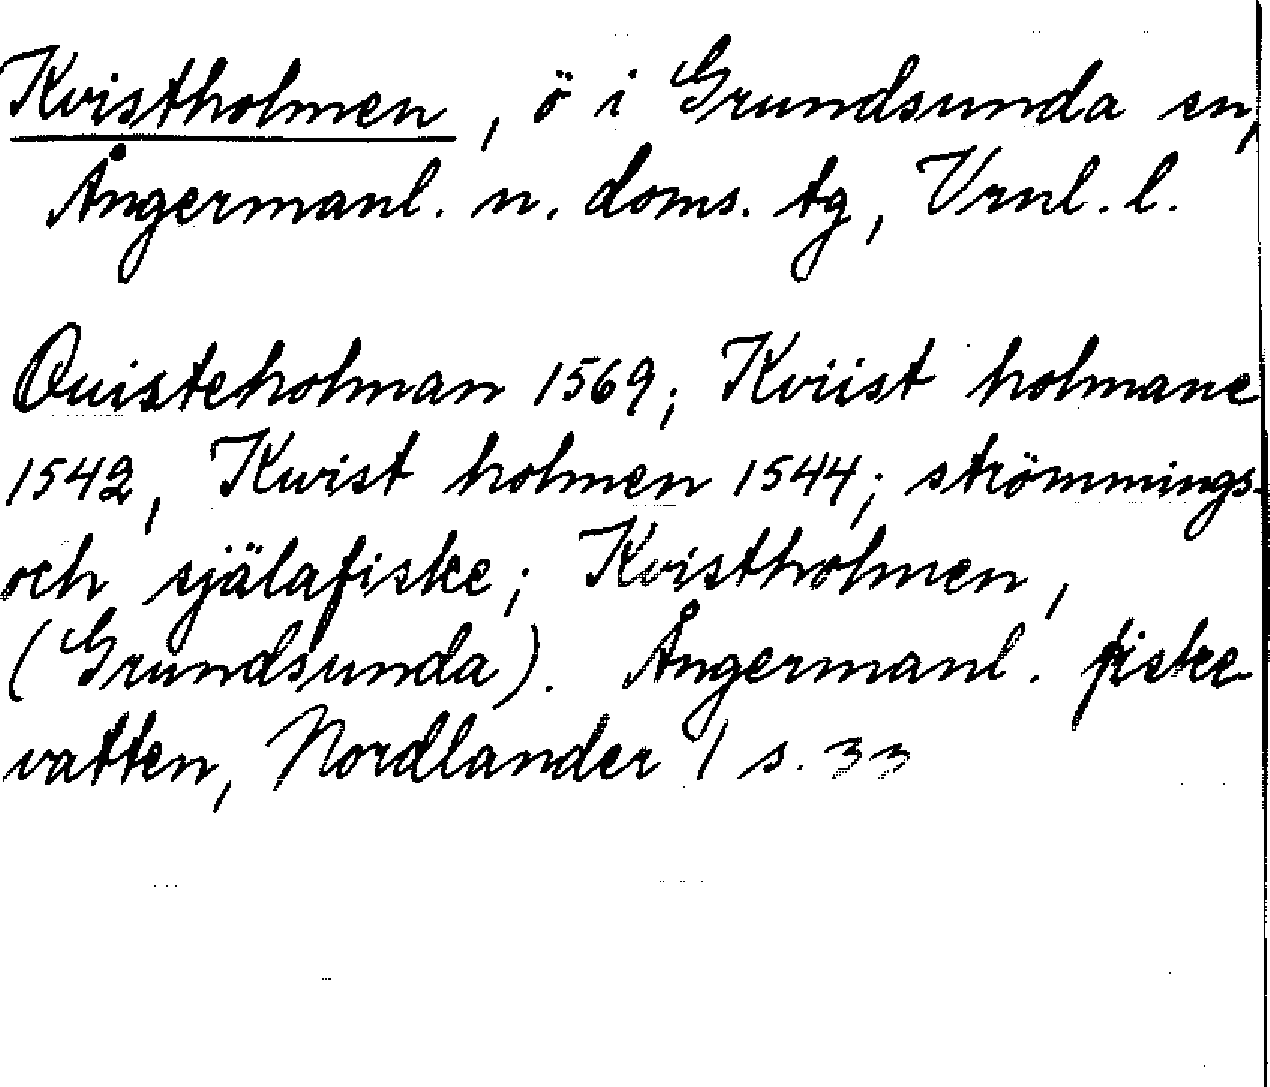 Kvistholmen, ö i Grundsunda sn,
Ångermanl. n. doms. tg, Vrnl. l.
Quisteholman 1569; Kviist holmane
1542, Kwist holmen 1544; strömmings-
och själafiske; Kvistholmen,
(Grundsunda). Ångermanl. fiske
vatten, Nordlander / s. 33